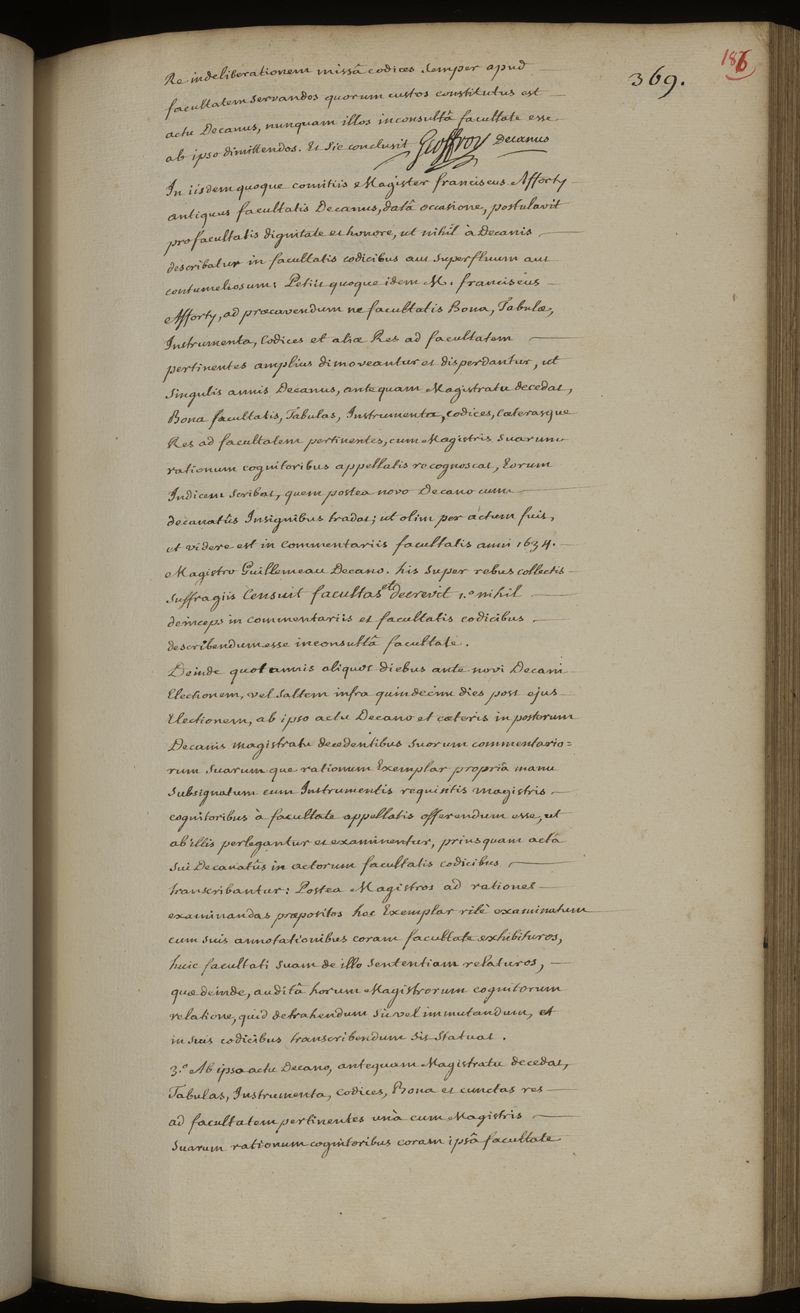 186
369.
Re in deliberationem missâ codices semper apud
facultatem servandos quorum custos constitutus est
actu Decanus, nunquam illos inconsultâ facultate esse
ab ipso dimittendos. Et sic conclusit Geoffroy Decanus
In iisdem quoque comitiis Magister franciscus Afforty
antiquus facultatis Decanus, datâ occasione, postulavit
pro facultatis dignitate et honore, ut nihil à Decanis
describatur in facultatis codicibus aut superfluum aut
contumeliosum; Petiit quoque idem M. franciscus
Afforty, ad præcavendum ne facultatis Bona, Tabulæ,
Instrumenta, Codices et aliæ Res ad facultatem
pertinentes amplius dimoveantur et disperdantur, ut
singulis annis Decanus, antequam Magistratu decedat,
Bona facultatis, Tabulas, Instrumenta, codices, Cæterasque
Res ad facultatem pertinentes, cum Magistris suarum
rationum cognitoribus appellatis recognoscat, Eorum
Indicem scribat, quem postea novo Decano cum
decanatûs Insignibus tradat; ut olim per actum fuit,
ut videre est in Commentariis facultatis anni 1634.
Magistro Guillemeau Decano. his super rebus collectis
suffragiis Censuit facultas et decrevit 1.o nihil
deinceps in commentariis et facultatis codicibus
describendum esse inconsultâ facultate.
Deinde quotannis aliquot diebus ante novi Decani
Electionem, vel saltem infra quindecim dies post ejus
Electionem, ab ipso actu Decano et cæteris in posterum
Decanis magistratu decedentibus suorum commentario=
rum suarumque rationum Exemplar propriâ manu
subsignatum cum Instrumentis requisitis magistris
cognitoribus à facultate appellatis offerendum esse, ut
ab illis perlegantur et examinentur, priusquam acta
sui Decanatûs in actorum facultatis codicibus
transcribantur: Postea Magistros ad rationes
examinandas præpositos hoc Exemplar ritè examinatum
cum suis annotationibus coram facultate exhibituros,
huic facultati suam de illo sententiam relaturos,
quæ deinde, auditâ horum Magistrorum cognitorum
relatione, quid detrahendum sit vel immutandum, et
in suis codicibus transcribendum sit statuat.
3.o Ab ipso actu Decano, antequam Magistratu decedat,
Tabulas, Instrumenta, Codices, Bona et cunctas res
ad facultatem pertinentes unà cum Magistris
suarum rationum cognitoribus coram ipsâ facultate